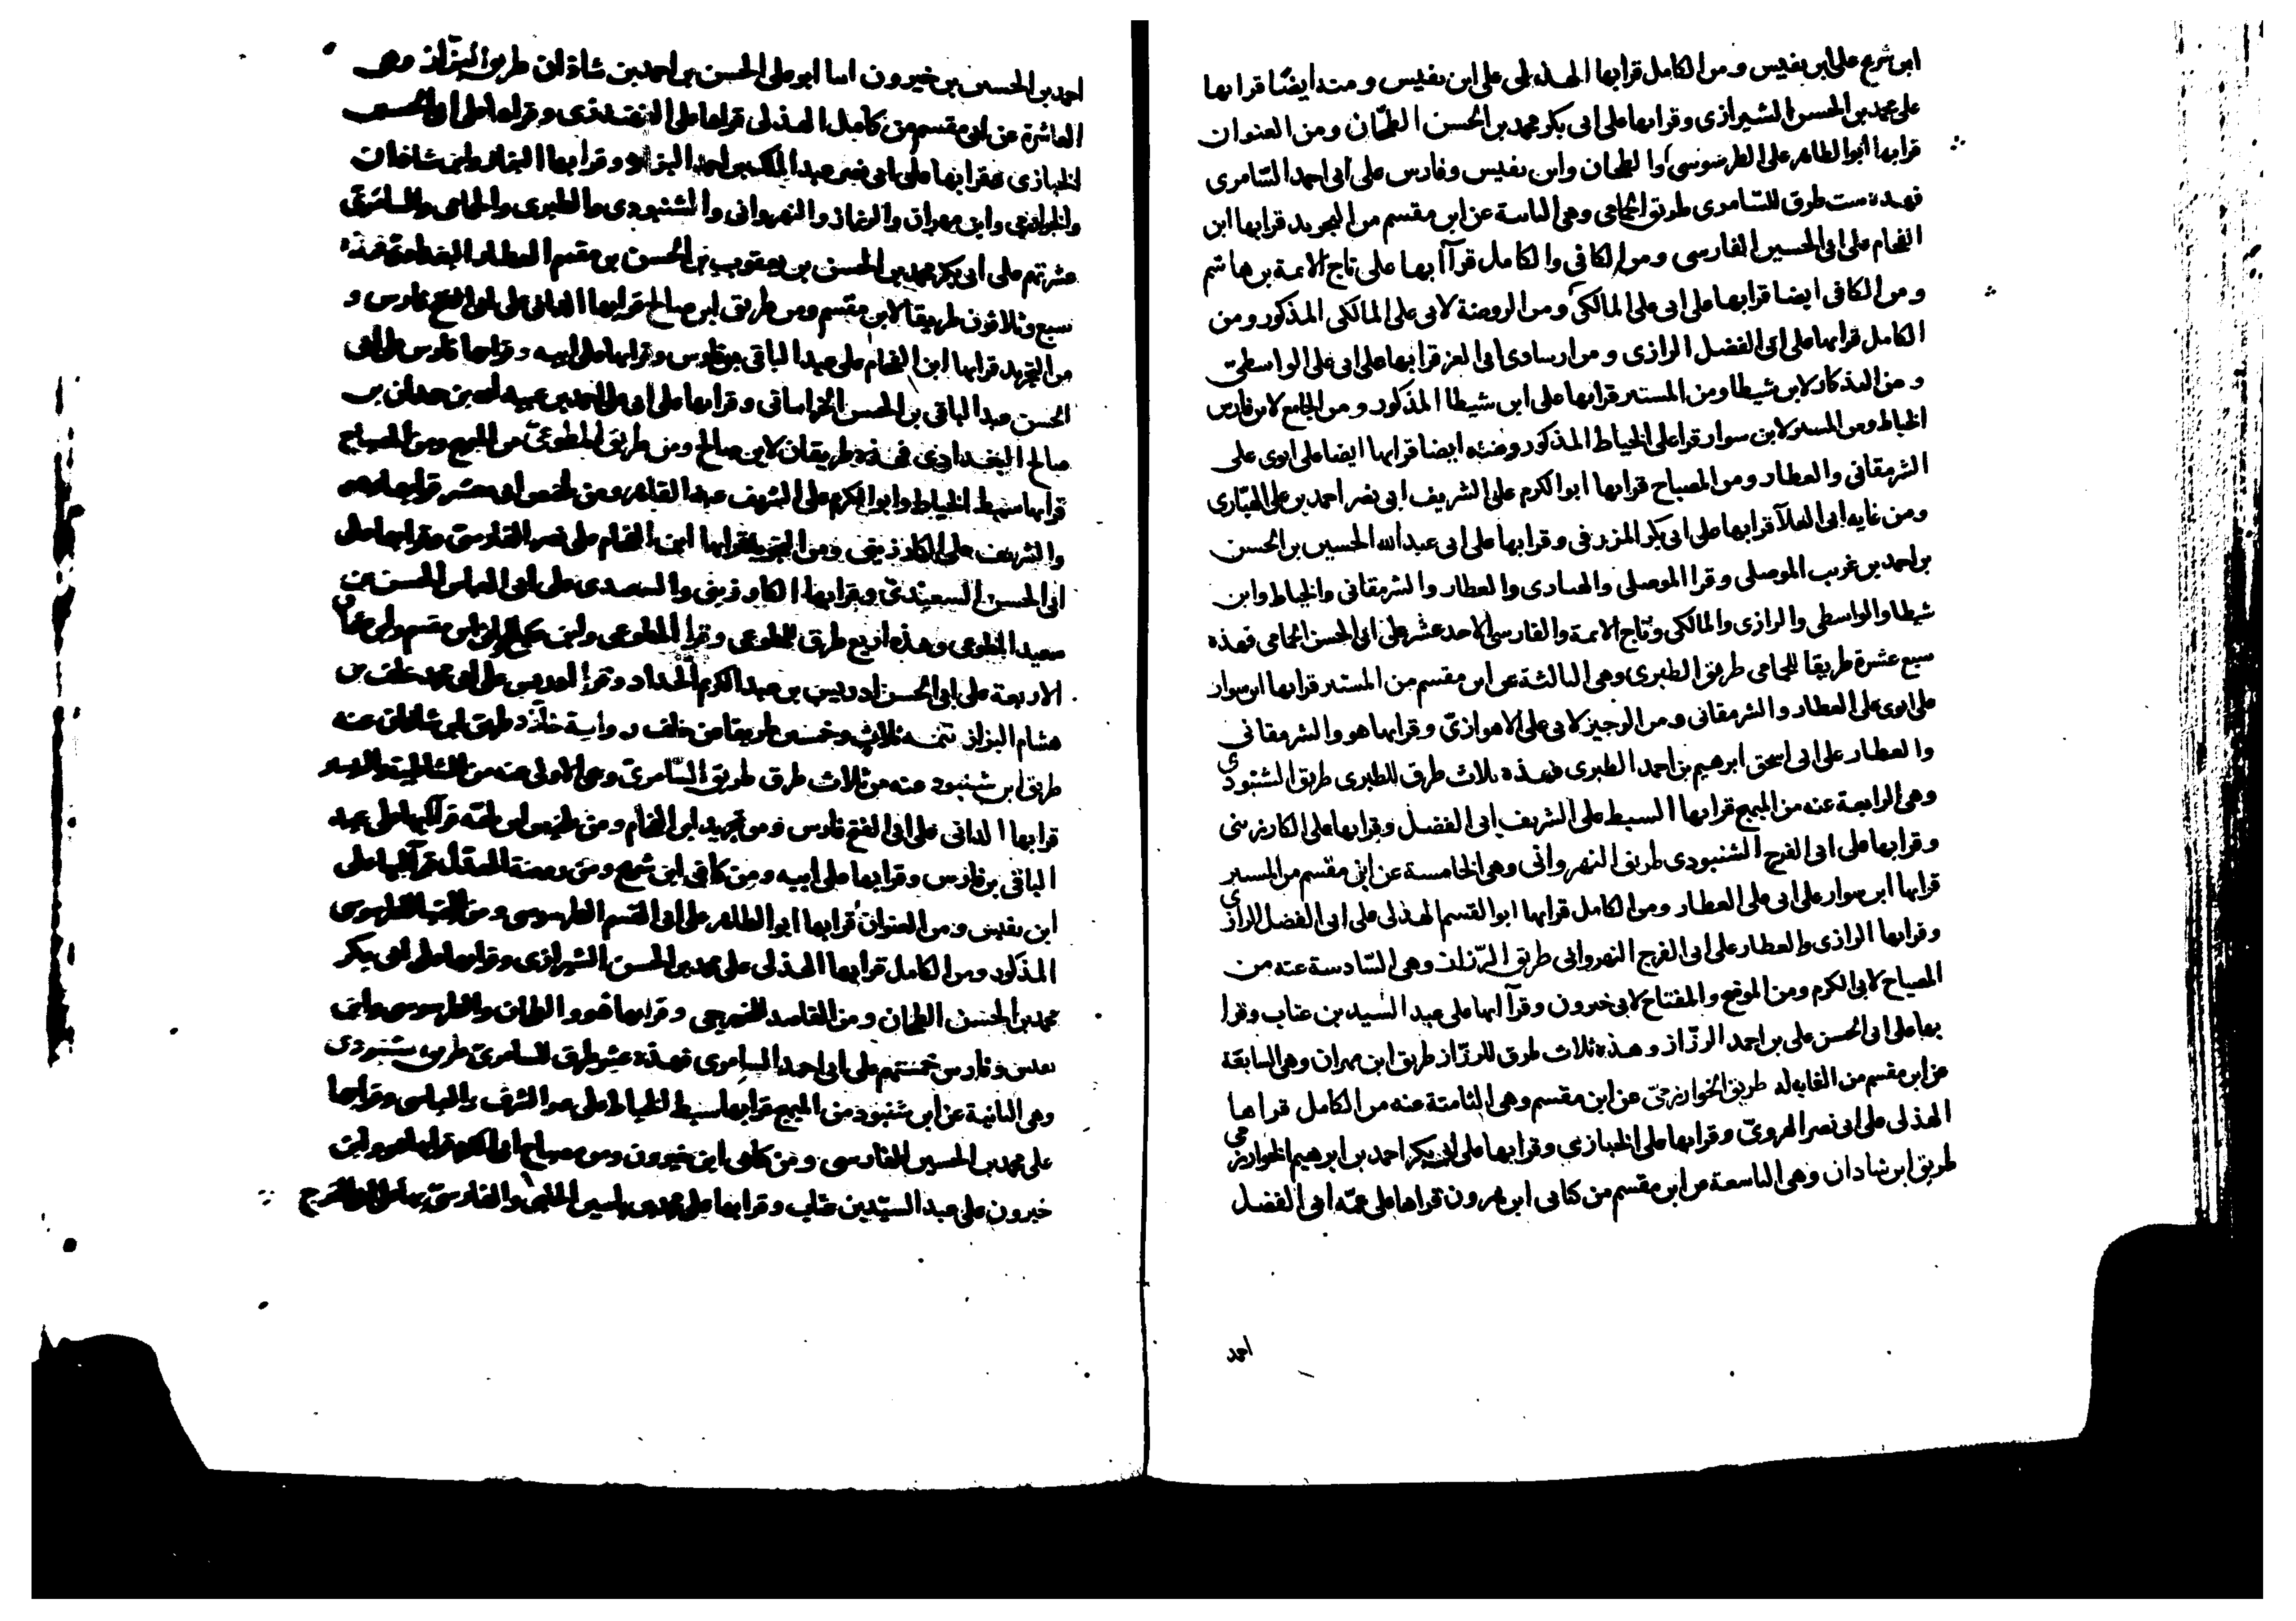 ابن شريح على ابن نفيس ومن الكامل قرا بها الهذلى على ابن نفيس ومنه ايضًا قرا بها
على محمد بن الحسن الشيرازى وقرا بها على ابى بكر محمد بن الحسن الطحّان ومن العنوان
قرا بها ابو الطاهر على الطرسوسى والطحان وابن نفيس وفارس على ابى احمد السّامرى
فهذه ست طرق للسّامرى طريق الحمامى وهى الثانية عن ابن مقسم من التجريد قرا بها ابن
الفحام على ابى الحسين الفارسى ومن الكافى والكامل قرآ بها على تاج الائمة بن هاشم
ومن الكافى ايضا قرا بها على ابى على المالكى ومن الروضة لابى على المالكى المذكور ومن
الكامل قرا بها على ابى الفضل الرازى ومن ارشادى ابى العز قرا بها على ابى على الواسطىّ
ومن التذكار لابن شيطا ومن المستنير قرا بها على ابن شيطا المذكور ومن الجامع لابن فارس
الخياط ومن المستنير لابن سوار قرا على الخياط المذكور ومنه ايضا قرا بها ايضا على ابوى على
الشرمقانى والعطار ومن المصباح قرا بها ابو الكرم على الشريف ابى نصر احمد بن على الهبّارى
ومن غايه ابى العلآ قرا بها على ابى بكر المزرفى وقرا بها على ابى عبدالله الحسين بن الحسن
بن احمد بن غريب الموصلى وقرا الموصلى والهبارى والعطار والشرمقانى والخياط وابن
شيطا والواسطى والرازى والمالكى وتاج الائمة والفارسى الاحد عشر على ابى الحسن الحمامى فهذه
سبع عشرة طريقا للحمامى طريق الطبرى وهى الثالثة عن ابن مقسم من المستنير قرا بها ابن سوار
على ابوى على العطار والشرمقانى ومن الوجيز لابى على الاهوازىّ وقرا بها هو والشرمقانى
والعطار على ابى اسحق ابرهيم بن احمد الطبرى فهذه ثلاث طرق للطبرى طريق الشنبوذى
وهى الرابعة عنه من المبهج قرا بها السبط على الشريف ابى الفضل وقرا بها على الكارزينى
وقرا بها على ابى الفرج الشنبوذى طريق النهروانى وهى الخامسة عن ابن مقسم من المستنير
قرا بها ابن سوار على ابى على العطار ومن الكامل قرا بها ابو القسم الهذلى على ابى الفضل الرازى
وقرا بها الرازى والعطار على ابى الفرج النهروانى طريق الرّزاز وهى السّادسة عنه من
المصباح لابى الكرم ومن الموضح والمفتاح لابن خيرون وقرآ بها على عبد السيد بن عتاب وقرا
بها على ابى الحسن على بن احمد الرزّاز وهذه ثلاث طرق للرزّاز طريق ابن مهران وهى السابعة
عن ابن مقسم من الغاية له طريق الخوارزمىّ عن ابن مقسم وهى الثامنة عنه من الكامل قراها
الهذلى على ابى نصر الهروىّ وقرا بها على الخبازى وقرا بها على ابى بكر احمد بن ابرهيم الخوارزمى
طريق ابن شاذان وهى التاسعة عن ابن مقسم من كتابى ابن خيرون قراها على عمّه ابى الفضل
احمد
احمد بن الحسين بن خيرون انا ابو على الحسن بن احمد بن شاذان طريق البزّاز وهى
العاشرة عن ابن مقسم من كامل الهذلى قراها على القهندزى وقراها على ابى الحسين
الخبازى وقرا بها على ابى نصر عبد الملك بن احمد البزاز وقرا بها البزاز وابن شاذان
والخوارزمى وابن مهران والرزاز والنهروانى والشنبوذى والطبرى والحمامى والسامرّى
عشرتهم على ابى بكر محمد بن الحسن بن يعقوب بن الحسن بن مقسم العطار البغدادى فهذه
سبع وثلاثون طريقا لابن مقسم ومن طريق ابن صالح قرا بها الدانى على ابى الفتح فارس و
من التجريد قرا بها ابن الفحام على عبد الباقى بن فارس وقرا بها على ابيه وقرا بها فارس على ابى
الحسن عبد الباقى بن الحسن الخراسانى وقرا بها على ابى على احمد بن عبيد الله بن حمدان بن
صالح البغدادى فهذه طريقان لابن صالح ومن طريق المطوعىّ من المبهج ومن المصباح
قرا بها سبط الخياط وابو الكرم على الشريف عبد القاهر ومن تلخيص ابى معشر قرا بها هو
والشريف على الكارزينى ومن التجريد قرا بها ابن الفحام على نصر الفارسى وقرا بها على
ابى الحسن السعيدىّ وقرا بها الكارزينى والسعيدى على ابى العباس الحسن بن
سعيد المطوعى وهذه اربع طرق للمطوعى وقرا المطوعى وابن صالح وابن مقسم وابن عثمان
الاربعة على ابى الحسن ادريس بن عبد الكريم الحداد وقرا ادريس على ابى محمد خلف بن
هشام البزاز تتمه ثلاث وخمسين طريقا عن خلف رواية خلاد طريق ابن شاذان عنه
طريق ابن شنبوذ عنه من ثلاث طرق طريق السّامرىّ وهى الاولى عنه من الشاطبية والتيسير
قرا بها الدانى على ابى الفتح فارس ومن تجريد ابن الفحام ومن تلخيص ابن بليمة قرآ بها على عبد
الباقى بن فارس وقرا بها على ابيه ومن كافى ابن شريح ومن روضة المعدل قرآ بها على
ابن نفيس ومن العنوان قرا بها ابو الطاهر على ابى القسم الطرسوسى ومن المجتبى للطرسوسى
المذكور ومن الكامل قرا بها الهذلى على محمد بن الحسن الشيرازى وقرا بها على ابى بكر
محمد بن الحسن الطحان ومن القاصد للخزرجى وقرا بها هو والطحان والطرسوسى وابن
نفيس وفارس خمستهم على ابى احمد السامرى فهذه عشر طرق للسامرىّ طريق الشنبوذى
وهى الثانية عن ابن شنبوذ من المبهج قرا بها سبط الخياط على عز الشرف العباسى وقرا بها
على محمد بن الحسين الفارسى ومن كتابى ابن خيرون ومن مصباح ابى الكرم قرا بها هو وابن
خيرون على عبد السيّد بن عتاب وقرا بها على محمد بن ياسين الحلبى والفارسىّ بها على ابى الفرج